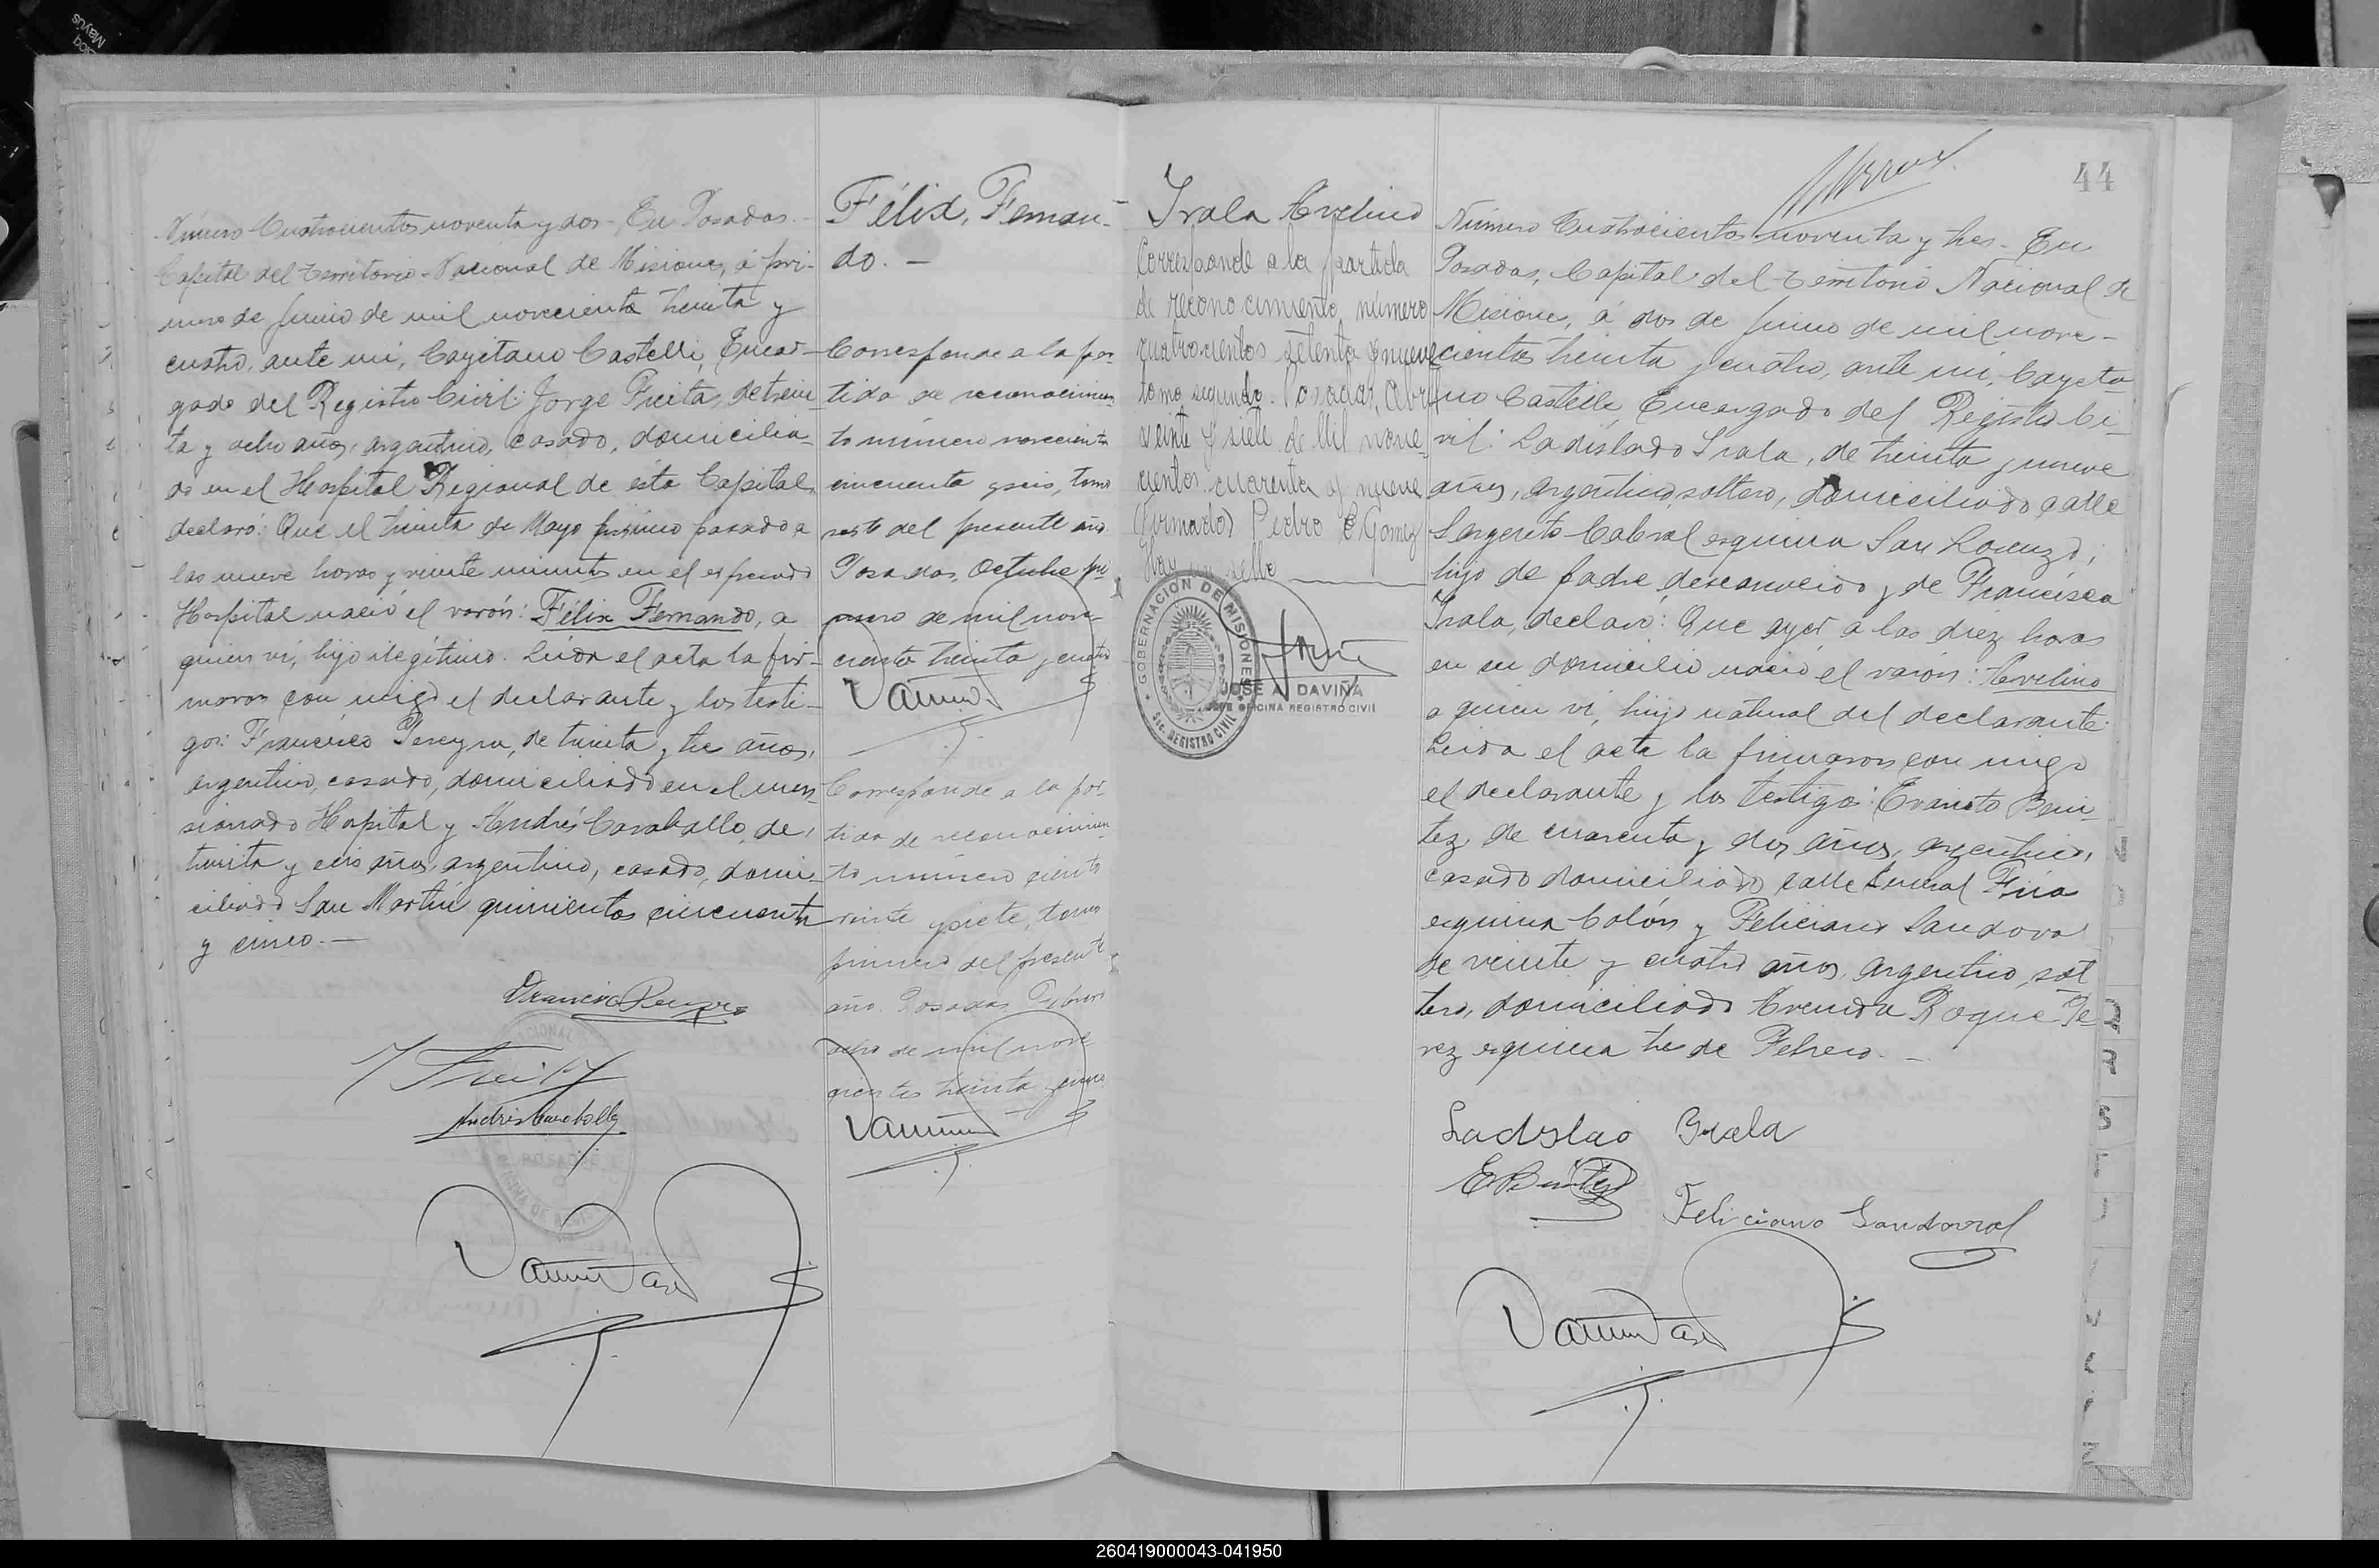 Número Cuatrocientos noventa y dos - En Posadas -
Capital del Territorio Nacional de Misiones, á pri-
mero de Junio de mil novecientos treinta y
cuatro, ante mí, Cayetano Castelli, Encar-
gado del Registro Civil: Jorge Freita, de trein-
ta y ocho años, argentino, casado, domicilia-
do en el Hospital Regional de ésta Capital,
declaró: Que el treinta de Mayo próximo pasado a
las nueve horas y veinte minutos en el expresado
Hospital nació el varón: Félix Fernando, a
quien ví, hijo ilegítimo. Leída el acta la fir-
maron con migo el declarante y los testi-
gos: Francisco Pereyra, de treinta y tres años,
argentino, casado, domiciliado en el men-
cionado Hospital y Andrés Caraballo, de
treinta y seis años, argentino, casado, domi-
ciliado San Martín quinientos cincuenta
y cinco.-
Andrés Caraballo
Félix, Fernan-
do. -
Corresponde a la par-
tida de reconocimien-
to número novecientos
cincuenta y seis, tomo
sexto del presente año.
Posadas, Octubre pri-
mero de mil nove-
cientos treinta y cuatro
Corresponde a la par-
tida de reconocimien-
to número ciento
veinte y siete, tomo
primero del presente
año. Posadas, Febrero
ocho de mil nove-
cientos treinta y cinco
Irala Avelino
Corresponde a la partida
de reconocimiento número
cuatrocientos setenta y nueve
tomo segundo. Posadas, Abril
veinte y siete de Mil nove-
cientos cuarenta y nueve
(Firmado) Pedro C Gomez
Hay un sello
GOBERNACIÓN DE MISIONES
REGISTRO CIVIL
JOSE A. DAVIÑA
JEFE OFICINA REGISTRO CIVIL
44
Número Cuatrocientos noventa y tres - En
Posadas, Capital del Territorio Nacional de
Misiones, á dos de Junio de mil nove-
cientos treinta y cuatro, ante mí, Cayeta-
no Castelli, Encargado del Registro Ci-
vil: Ladislado Irala, de treinta y nueve
años, argentino, soltero, domiciliado calle
Sargento Cabral esquina San Lorenzo,
hijo de padre desconocido y de Francisca
Irala, declaró: Que ayer a las diez horas
en su domicilio nació el varón: Avelino
a quien ví, hijo natural del declarante.
Leida el acta la firmaron con migo
el declarante y los testigos: Evaristo Beni-
tez, de cuarenta y dos años, argentino,
casado domiciliado calle
esquina Colón y Feliciano Sandoval
de veinte y cuatro años, argentino, sol-
tero, domiciliado Avenida Roque Pe-
rez esquina tres de Febrero. -
Ladislao Irala
E Benitez
Feliciano Sandoval
260419000043-041950